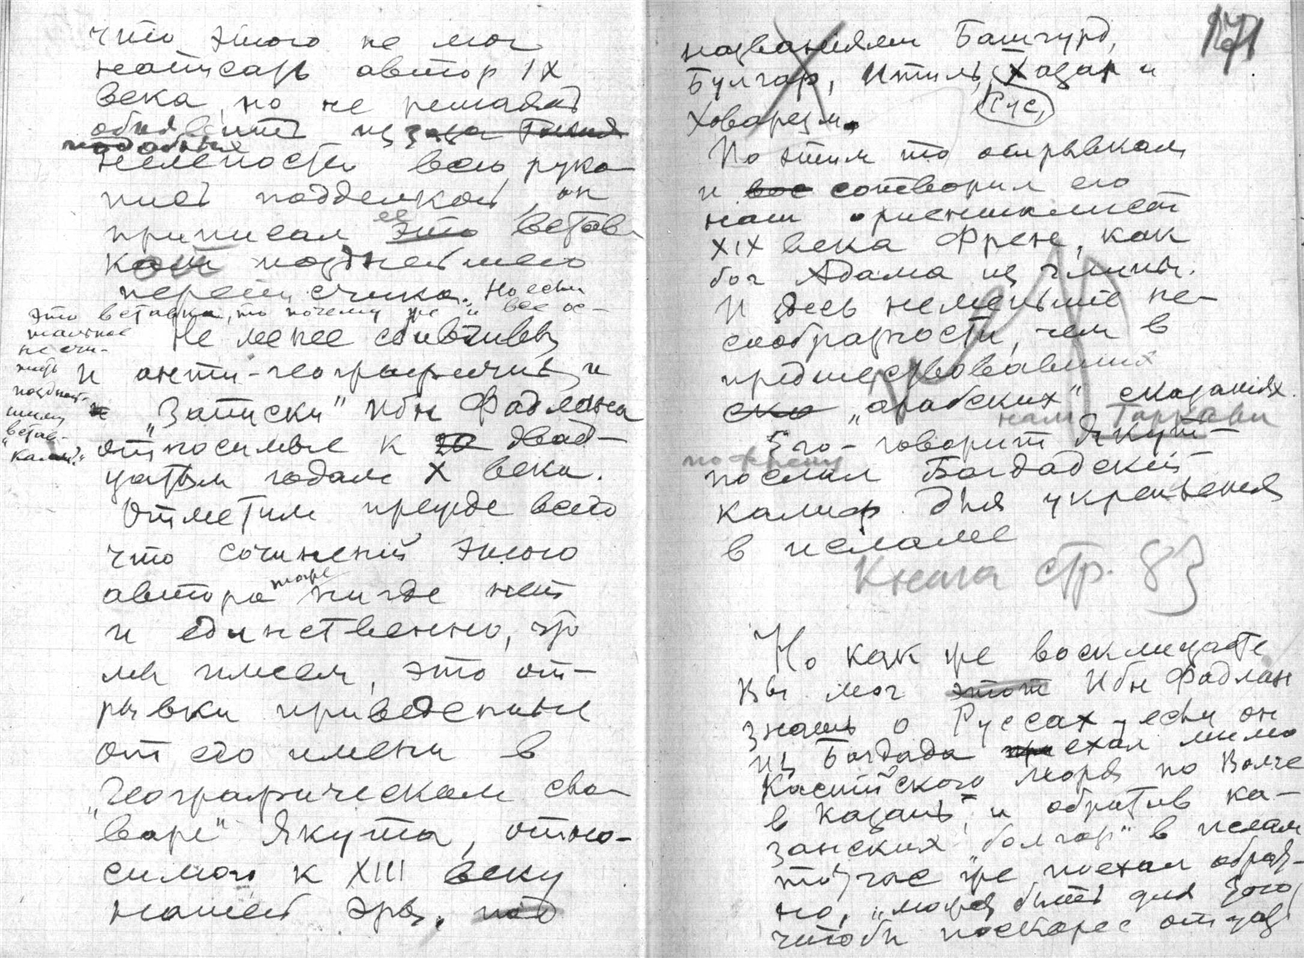 что этого не мог
написать автор IX
века, но не решаясь
объявить из за
подобных
нелепости всю руко-
пись подделкой, он
приписал ее встав-
кой позднейшего
переписчика. Но если
это вставка, то почему же и все ос-
тальное
не счи-
тать
поздней-
шими
встав-
ками?"
Не менее сбивчивы
и анти-географичны и
"Записки" Ибн Фадлана
относимые к двад-
цатым годам X века.
Отметим прежде всего
что сочинений этого
автора тоже нигде нет
и единственно, что
мы имеем, это от-
рывки приведенные
от его имени в
"Географическом сло-
варе" Якута, отно-
симого к XIII веку
нашей эры, под
171
названиями Башгурд,
Булгар, Итиль, Хазар и
Рус,
Ховарезм.
По этим то отрывкам
и сотворил его
наш ориенталист
XIX века Френ, как
бог Адама из глины.
И здесь не меньшие не-
сообразности, чем в
предшествовавших
"арабских" сказаниях.
Его - говорит нам Якут -
по Френу
послал Багдадский
калиф для укрепления
в исламе
Книга стр. 83
Но как же восклицаете
Вы мог этот Ибн Фадлан
знать о Руссах, если он
из Багдада ехал мимо
Каспийского моря по Волге
в Казань, и обратив ка-
занских "болгар" в ислам
тотчас же поехал обрат-
но, "может быть для того,
чтобы поскорее